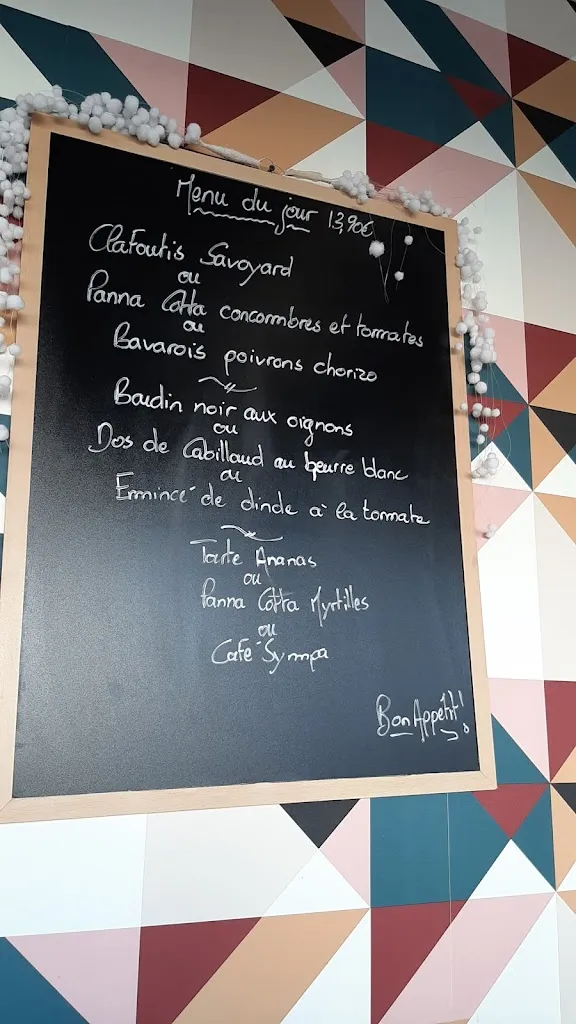 Menu du jour 13,90€
Clafoutis Savoyard
ou
Panna Cotta concombres et tomates
ou
Bavarois poivrons chorizo
Boudin noir aux oignons
ou
Dos de Cabillaud au beurre blanc
ou
Emincé de dinde à la tomate
Tarte Ananas
ou
Panna Cotta Myrtilles
ou
Café Sympa
Bon Appétit!